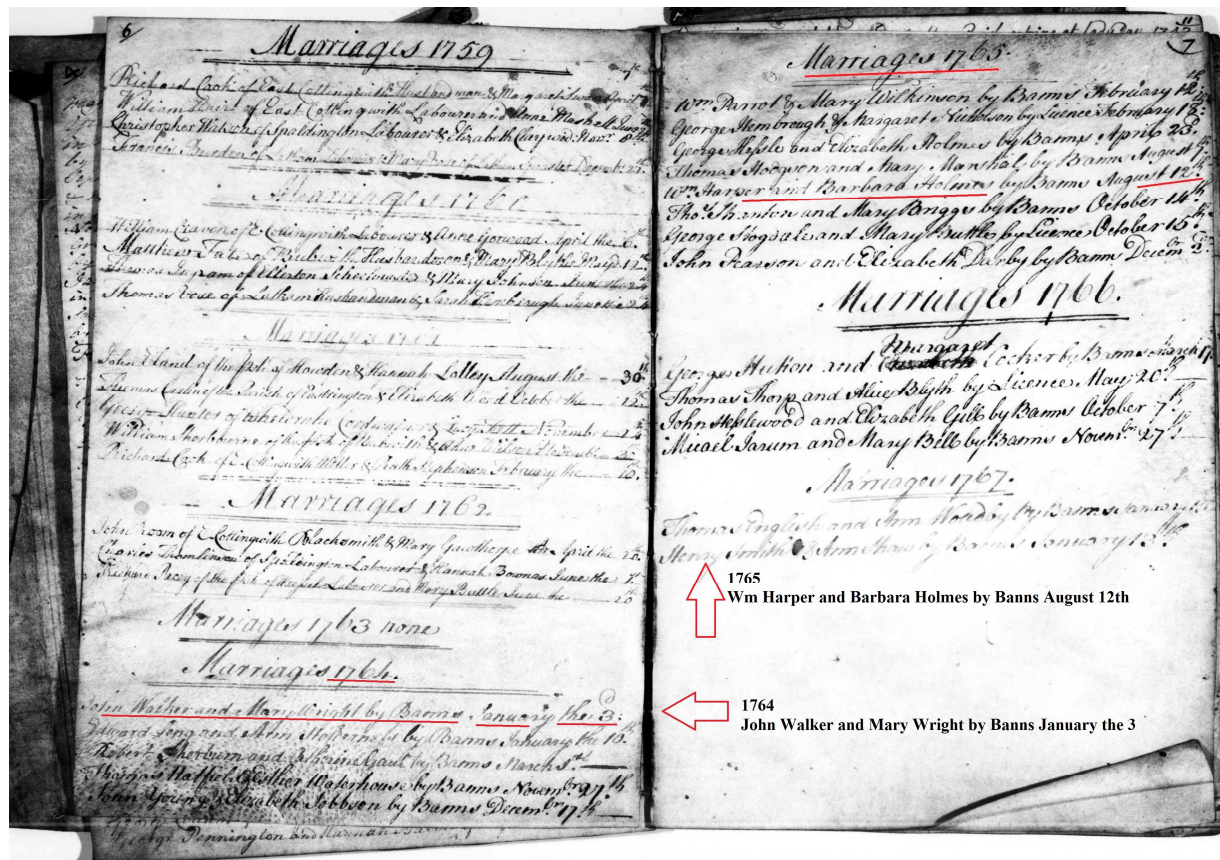 6
Marriages 1759
Richard Cook of East Cottingwith Husbandman & Margaret April
William of East Cottingwith Labourer and Anne June
Christopher Watson of Spaldington Labourer & Elizabeth Novr. 8th
Francis Burdon of Latham Labourer & Mary of Decembr
Marriages 1760
William Craven of E. Cottingwith Labourer & Anne April the 6th
Matthew of Bubwith Husbandman & Mary Blyth May 12th
Thomas Ingram of Ellerton Schoolmaster & Mary Johnson June the 24
Thomas of Latham Husbandman & Sarah June the 24
Marriages 1761
John Eland of the psh of Howden & Hannah Lolley August the 30th
Thomas of the Parish of Eastrington & Elizabeth Ward October the 15th
George of Cordwainer & November
William Sherbourne of the psh of Bubwith & Wilson
Richard Cook of E. Cottingwith Miller & Ruth Stephenson February the 10.
Marriages 1762.
John of E Cottingwith Blacksmith & Mary Gawthorpe April the
Charles Thomlinson of Spaldington Labourer & Hannah Bownas June the 7th
Richard of the psh of Labourer and Mary Buttle June the 20
Marriages 1763 none
Marriages 1764.
John Walker and Mary Wright by Banns January the 3d:
Edward Long and Ann by Banns January the
Robert Sherburn and Catherine Gaul by Banns March
Thomas Hatfiel & Esther Waterhouse by Banns Novembr 27th
John Young & Elizabeth Jobbson by Banns Decembr 17th
George Pennington and Hannah
11
7
Marriages 1765.
Wm Parrot & Mary Wilkinson by Banns February 12th
George Hembrough & Margaret Nicholson by Licence February 18th
George Hessle and Elizabeth Holmes by Banns April 23d
Thomas Hodgson and Mary Marshal by Banns August
Wm Harper and Barbara Holmes by Banns August 12th
Thos. Thanton and Mary Briggs by Banns October 14th
George Stogdale and Mary Buttle by Licence October 15th
John Pearson and Elizabeth Darby by Banns Decembr 2d
Marriages 1766.
Margaret
George Hutton and Cocker by Banns March 17
Thomas Thorp and Alice Blyth by Licence May 20th
John Hesslewood and Elizabeth Gill by Banns October 7th
Micael Jarum and Mary Bell by Banns Novembr 27th
Marriages 1767.
Thomas English and Ann by Banns January
Henry Smith & Ann Shaw by Banns January 13th
1765
Wm Harper and Barbara Holmes by Banns August 12th
1764
John Walker and Mary Wright by Banns January the 3